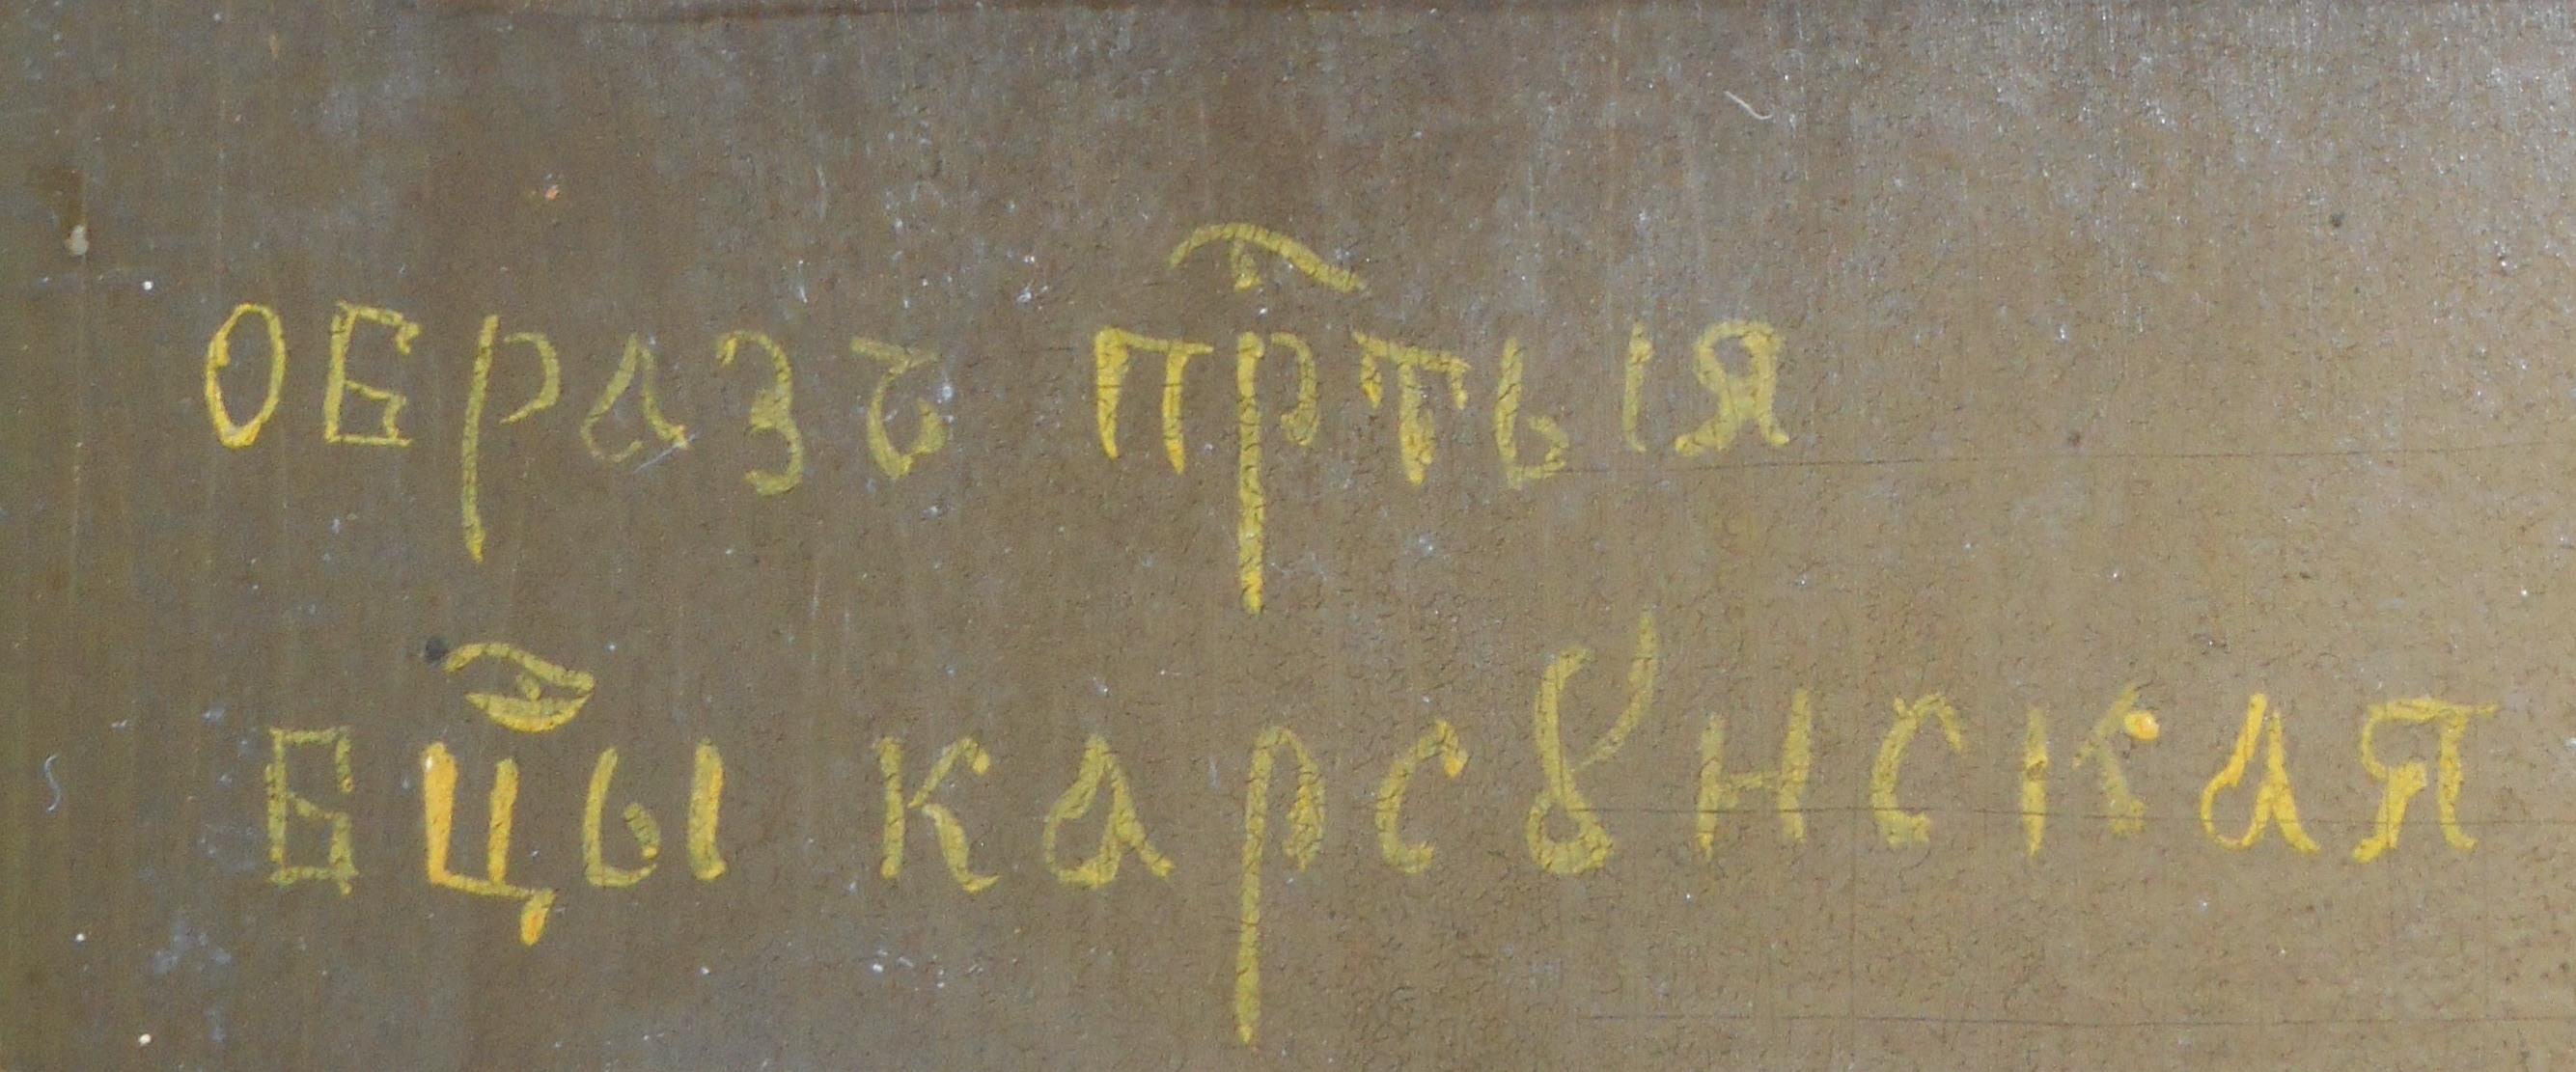 образъ пр҃тыя
бц҃ы карсꙋнская